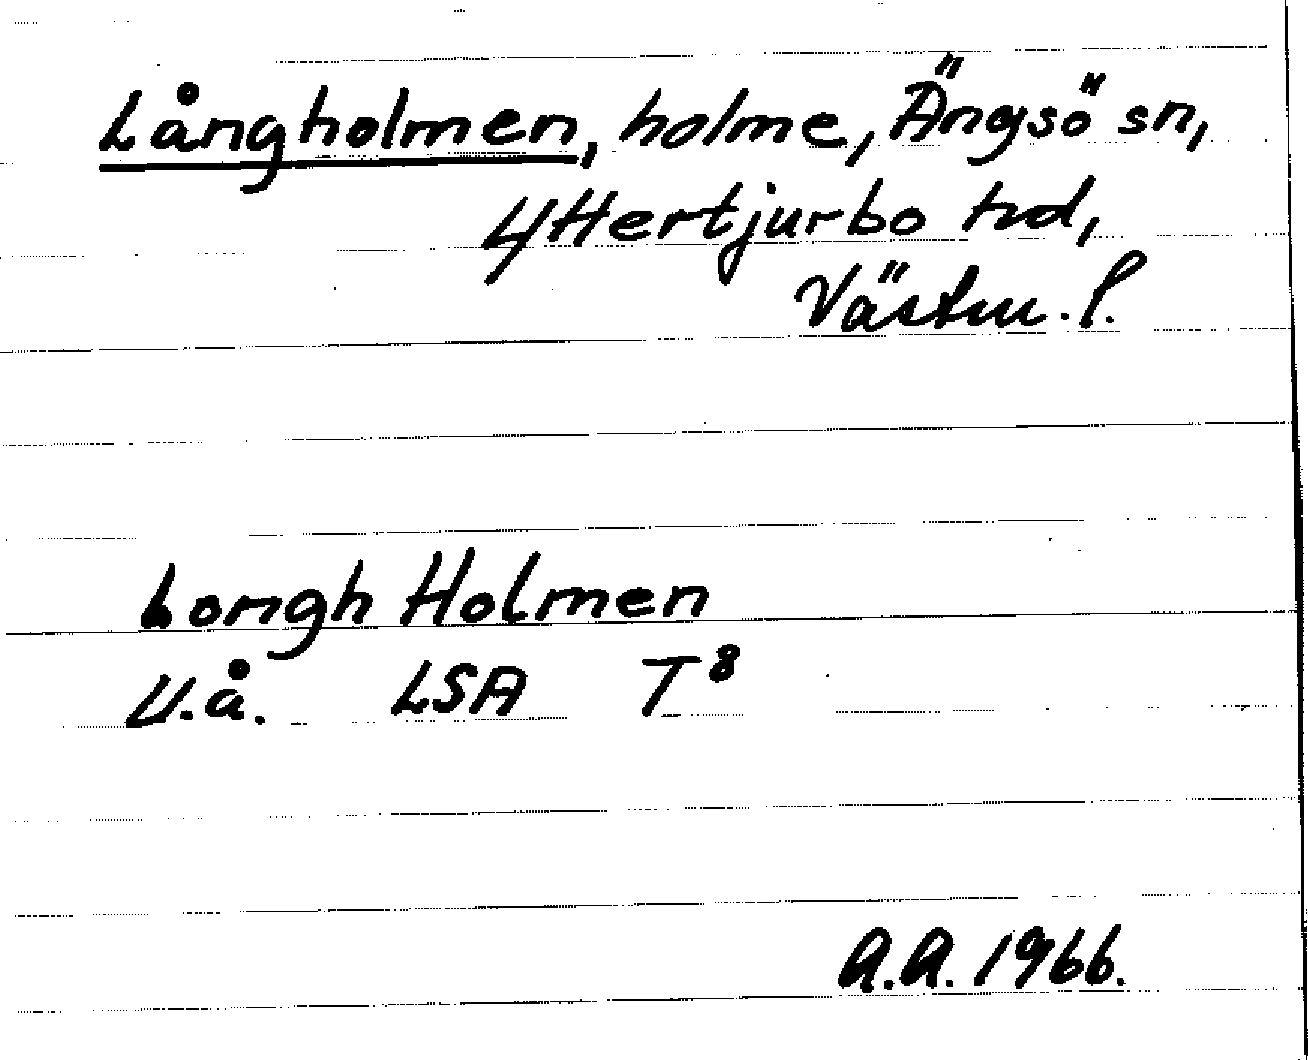 Långholmen, holme, Ängsö sn,
Yttertjurbo hd,
Västm. l.
Longh Holmen
U.å. LSA T8
A.A. 1966.